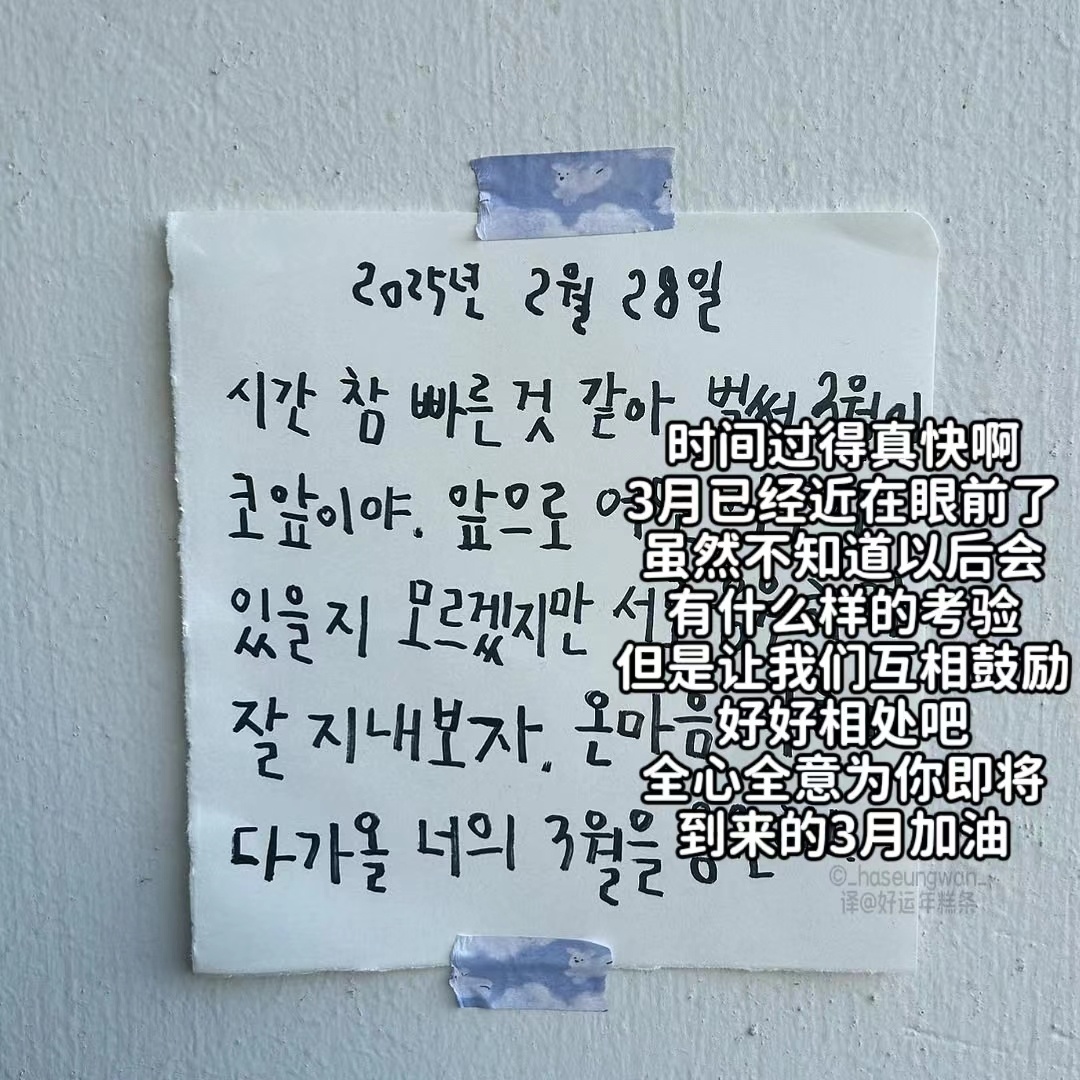 2025년 2월 28일
시간 참 빠른 것 같아 벌써 3월이
코앞이야. 앞으로
있을지 모르겠지만
잘 지내보자. 온마음
다가올 너의 3월을
时间过得真快啊
3月已经近在眼前了
虽然不知道以后会
有什么样的考验
但是让我们互相鼓励
好好相处吧
全心全意为你即将
到来的3月加油
©_haseungwan_
译@好运年糕条